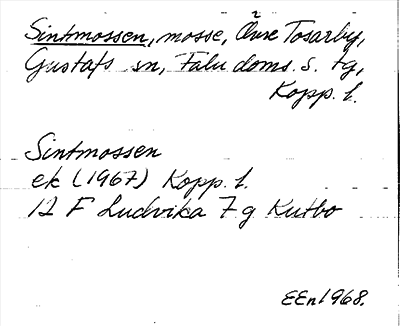 Sintmossen, mosse, Övre Tosarby,
Gustafs sn, Falu doms. s. tg,
Kopp. l.
Sintmossen
ek (1967) Kopp. l.
12 F Ludvika 7 g Kutbo
EEn 1968.